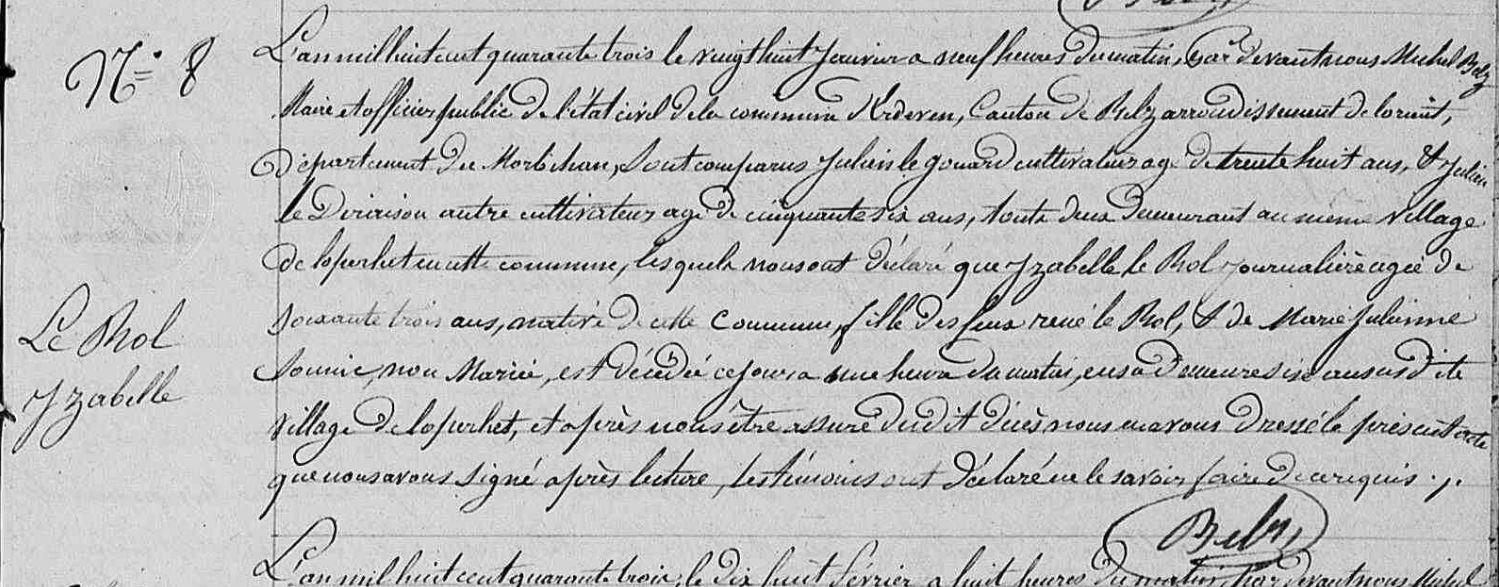 N.° 8
L'an mil huit cent quarante trois le vingt huit Janvier a neuf heures du matin, par devant nous Michel Belz
Maire et officier public de l'état civil de la commune d'Erdeven, Canton de Belz arrondissement de lorient,
département du Morbihan, Sont comparus Julien le gouard cultivateur agé de trente huit ans, & Julien
le Diraison autre cultivateur agé de cinquante six ans, touts deux demeurant au même village
de loperhet en cette commune, lesquels nous ont déclaré que Yzabelle le Rol Journalière agée de
soixante trois ans, native de cette commune, fille des feux rené le Rol, & de Marie Julienne
non Mariée, est décédée ce jour a une heure du matin, en sa demeure sise au susdite
village de loperhet, et après nous être assuré dudit décès nous en avons dressé le présent acte
que nous avons signé après lecture, les témoins ont déclaré ne le savoir faire de ce requis ./.
Le Rol
Yzabelle
Belz
L'an mil huit cent quarante trois, le dix huit février a huit heures du matin, par devant nous Michel